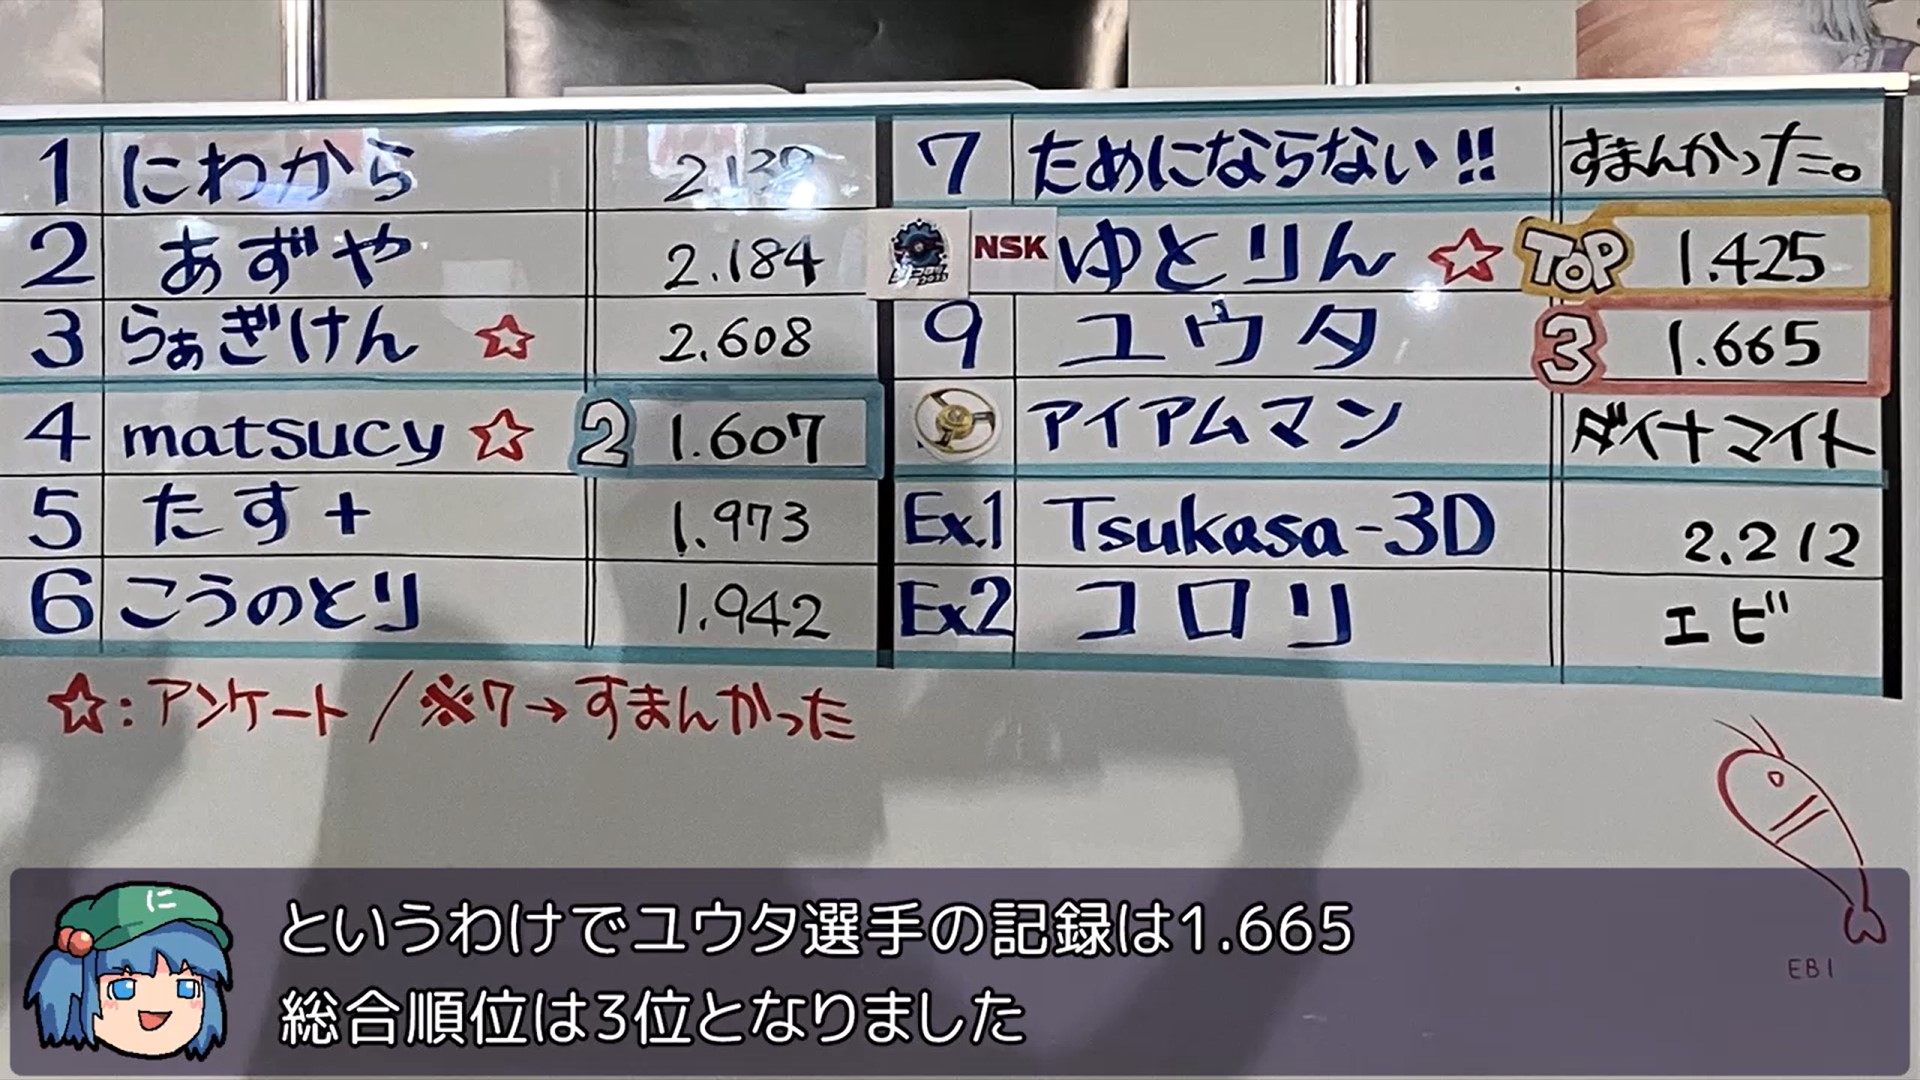 1 にわから
2 あずや 2.184
3 らぁぎけん ☆ 2.608
4 matsucy ☆ 2 1.607
5 たす+ 1.973
6 こうのとり 1.942
7 ためにならない!! すまんかった。
NSK ゆとりん ☆ TOP 1.425
9 ユウタ 3 1.665
アイアムマン ダイナマイト
Ex.1 Tsukasa-3D 2.212
Ex2 コロリ エビ
☆:アンケート/※7→すまんかった
EBI
に
というわけでユウタ選手の記録は1.665
総合順位は3位となりました